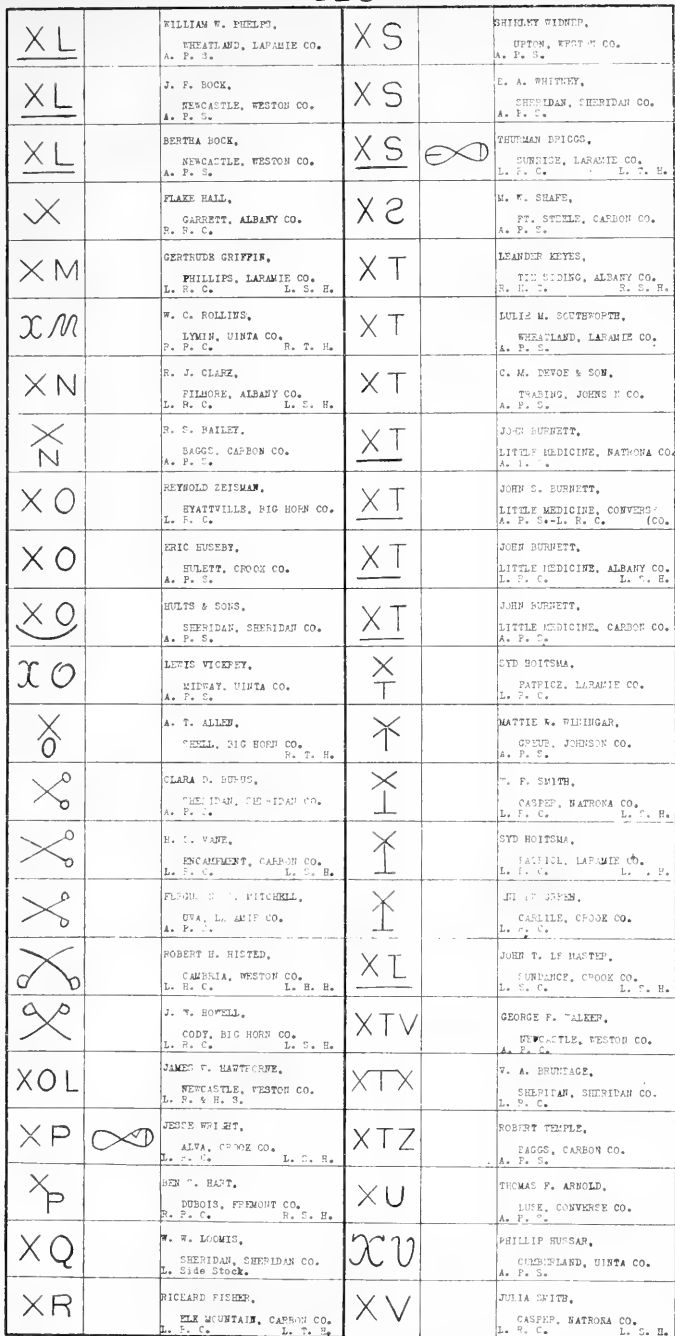 XL
WILLIAM W. PHELPS,
WHEATLAND, LARAMIE CO.
A. P. S.
XL
J. F. BOCK,
NEWCASTLE, WESTON CO.
A. P. S.
XL
BERTHA BOCK,
NEWCASTLE, WESTON CO.
A. P. S.
FLAKE HALL,
GARRETT, ALBANY CO.
R. R. C.
XM
GERTRUDE GRIFFIN,
PHILLIPS, LARAMIE CO.
L. R. C. L. S. H.
XM
W. C. ROLLINS,
LYMIN, UINTA CO.
R. T. H.
XN
R. J. CLARK,
FILMORE, ALBANY CO.
L. R. C. L. S. H.
X
N
R. S. BAILEY,
BAGGS, CARBON CO.
A. P. S.
XO
REYNOLD ZEISMAN,
HYATTVILLE, BIG HORN CO.
L. R. C.
XO
ERIC HUSEBY,
HULETT, CROOK CO.
A. P. S.
XO
HULTS & SONS,
SHERIDAN, SHERIDAN CO.
A. P. S.
XO
LEWIS VICKREY,
MIDWAY, UINTA CO.
A. P. S.
X
O
A. T. ALLEN,
SHELL, BIG HORN CO.
R. T. H.
CLARA D.
SHERIDAN, SHERIDAN CO.
A. P. S.
H. VANE,
ENCAMPMENT, CARBON CO.
L. R. C. L. S. H.
MITCHELL,
UVA, LARAMIE CO.
A. P. S.
ROBERT H. HISTED,
CAMBRIA, WESTON CO.
L. H. C. L. H. H.
J. W. HOWELL,
CODY, BIG HORN CO.
L. R. C. L. S. H.
XOL
JAMES HAWTHORNE,
NEWCASTLE, WESTON CO.
L. R. & H. S.
XP
JESSE WRIGHT,
ALVA, CROOK CO.
L. S. H.
XP
BEN HART,
DUBOIS, FREMONT CO.
R. S. H.
XQ
W. W. LOOMIS,
SHERIDAN, SHERIDAN CO.
L. Side Stock.
XR
RICHARD FISHER,
ELK MOUNTAIN, CARBON CO.
L. R. C. L. T. H.
XS
SHIRLEY WIDNER,
UPTON, WESTON CO.
A. P. S.
XS
E. A. WHITNEY,
SHERIDAN, SHERIDAN CO.
A. P. S.
XS
THURMAN BRIGGS,
SUNRISE, LARAMIE CO.
L. T. H.
X
M. W. SHAFE,
FT. STEELE, CARBON CO.
A. P. S.
XT
LEANDER KEYES,
TIE SIDING, ALBANY CO.
R. S. H.
XT
LULIE M. SOUTHWORTH,
WHEATLAND, LARAMIE CO.
A. P. S.
XT
C. M. DEVOE & SON,
TRABING, JOHNS N CO.
A. P. S.
XT
JOHN BURNETT,
LITTLE MEDICINE, NATRONA CO.
XT
JOHN S. BURNETT,
LITTLE MEDICINE, CONVERSE
A. P. S.-L. R. C. (CO.
XT
JOHN BURNETT,
LITTLE MEDICINE, ALBANY CO.
L. R. C. L. S. H.
XT
JOHN BURNETT,
LITTLE MEDICINE, CARBON CO.
A. P. S.
X
T
SYD HOITSMA,
LARAMIE CO.
MATTIE W. WININGAR,
GREUB, JOHNSON CO.
A. P. S.
F. SMITH,
CASPER, NATRONA CO.
L. S. H.
SYD HOITSMA,
LARAMIE CO.
GREEN,
CARLILE, CROOK CO.
JOHN T. LE MASTER,
SUNDANCE, CROOK CO.
L. S. C. L. S. H.
XTV
GEORGE F. WALKER,
NEWCASTLE, WESTON CO.
XTX
A. BRUNDAGE,
SHERIDAN, SHERIDAN CO.
L. R. C.
XTZ
ROBERT TEMPLE,
BAGGS, CARBON CO.
A. P. S.
XU
THOMAS F. ARNOLD,
LUSK, CONVERSE CO.
A. P. S.
XU
PHILLIP HUSSAR,
CUMBERLAND, UINTA CO.
A. P. S.
XV
JULIA SMITH,
CASPER, NATRONA CO.
L. R. C. L. S. H.